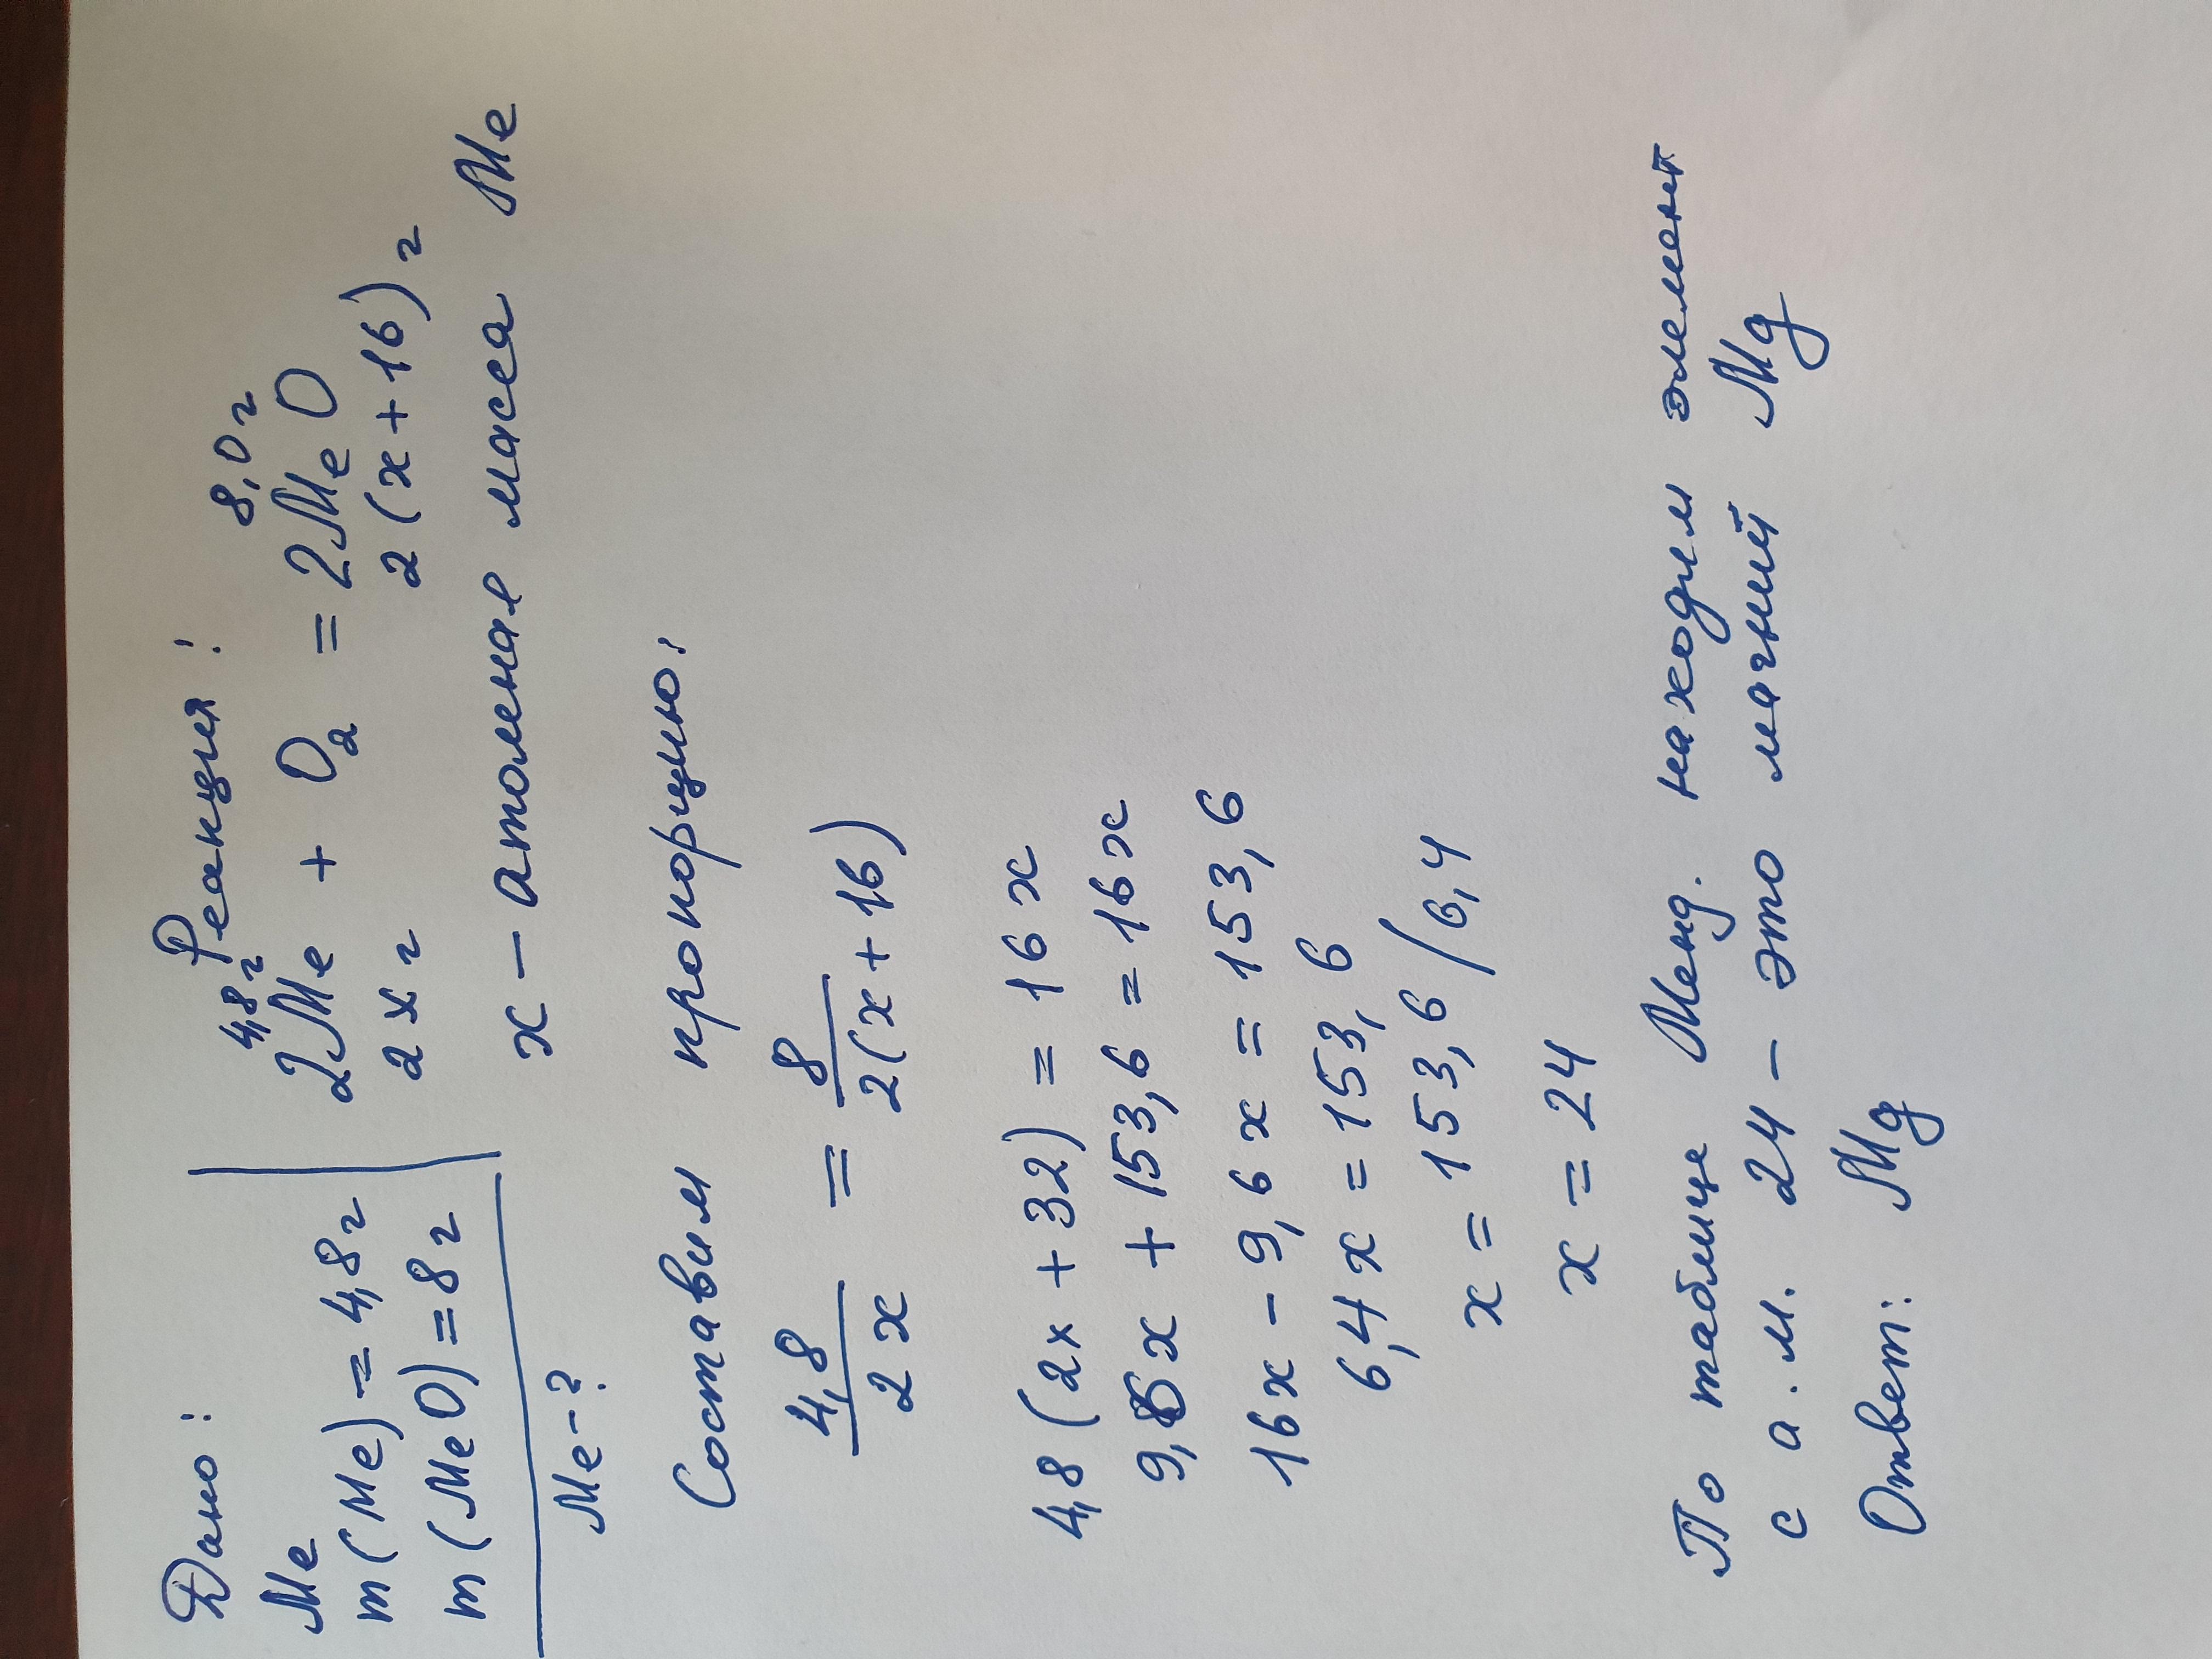 Дано:
Ме
m(Me) = 4,8 г
m(MeO) = 8 г
Ме - ?
Реакция:
4,8 г 8,0 г
2Me + O2 = 2MeO
2x г 2(x+16) г
x - атомная масса Ме
Составим пропорцию:
4,8/2x = 8/2(x+16)
4,8(2x+32) = 16x
9,6x + 153,6 = 16x
16x - 9,6x = 153,6
6,4x = 153,6
x = 153,6/6,4
x = 24
По таблице Менд. находим элемент
с а.м. 24 - это магний Mg
Ответ: Mg